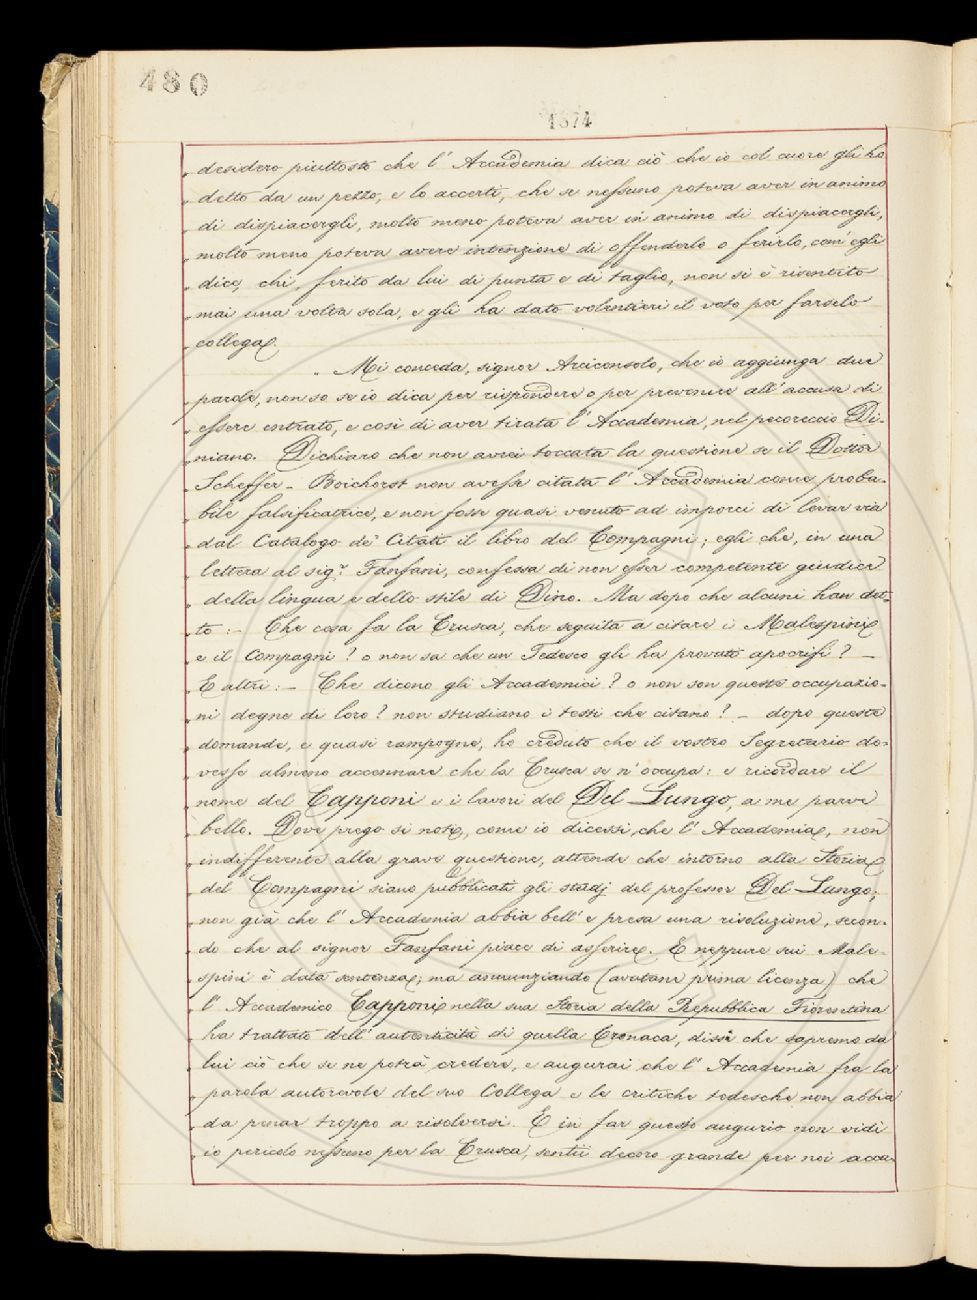 480
1874
„ desidero piuttosto che l' Accademia dica ciò che io col cuore gli ho
„ detto da un pezzo, e lo accerti, che se nessuno poteva aver in animo
„ di dispiacergli, molto meno poteva aver in animo di dispiacergli,
„ molto meno poteva avere intenzione di offenderlo o ferirlo, com' egli
„ dice, chi, ferito da lui di punta e di taglio, non si è risentito
„ mai una volta sola, e gli ha dato volentieri il voto per farselo
„ collega.
„ Mi conceda, signor Arciconsolo, che io aggiunga due
„ parole, non so se io dica per rispondere o per prevenire all' accusa di
„ essere entrato, e così di aver tirata l' Accademia, nel pecoreccio Di-
„ niano. Dichiaro che non avrei toccata la questione se il Dottor
„ Scheffer-Boichorst non avesse citata l' Accademia come proba-
„ bile falsificatrice, e non fosse quasi venuto ad imporci di levar via
„ dal Catalogo de' Citati il libro del Compagni; egli che, in una
„ lettera al sig.r Fanfani, confessa di non esser competente giudice
„ della lingua e dello stile di Dino. Ma dopo che alcuni han det-
„ to: - Che cosa fa la Crusca, che seguita a citare i Malespini
„ e il Compagni? o non sa che un Tedesco gli ha provato apocrifi? -
„ E altri: - Che dicono gli Accademici? o non son queste occupazio-
„ ni degne di loro? non studiano i testi che citano? - dopo queste
„ domande, e quasi rampogne, ho creduto che il vostro Segretario do-
„ vesse almeno accennare che la Crusca se n' occupa: e ricordare il
„ nome del Capponi e i lavori del Del Lungo, a me parve
„ bello. Dove prego si noti, come io dicessi, che l' Accademia, non
„ indifferente alla grave questione, attende che intorno alla Storia
„ del Compagni siano pubblicati gli studj del professor Del-Lungo;
„ non già che l' Accademia abbia bell' e presa una risoluzione, secon-
„ do che al signor Fanfani piace di asserire. E neppure sui Male-
„ spini è data sentenza; ma annunziando (avutane prima licenza) che
„ l' Accademico Capponi nella sua Storia della Repubblica Fiorentina
„ ha trattato dell' autenticità di quella Cronaca, dissi che sapremo da
„ lui ciò che se ne potrà credere, e augurai che l' Accademia fra la
„ parola autorevole del suo Collega e le critiche tedesche non abbia
„ da penar troppo a risolversi. E in far questo augurio non vidi
„ io pericolo nessuno per la Crusca, sentii decoro grande per noi acca-